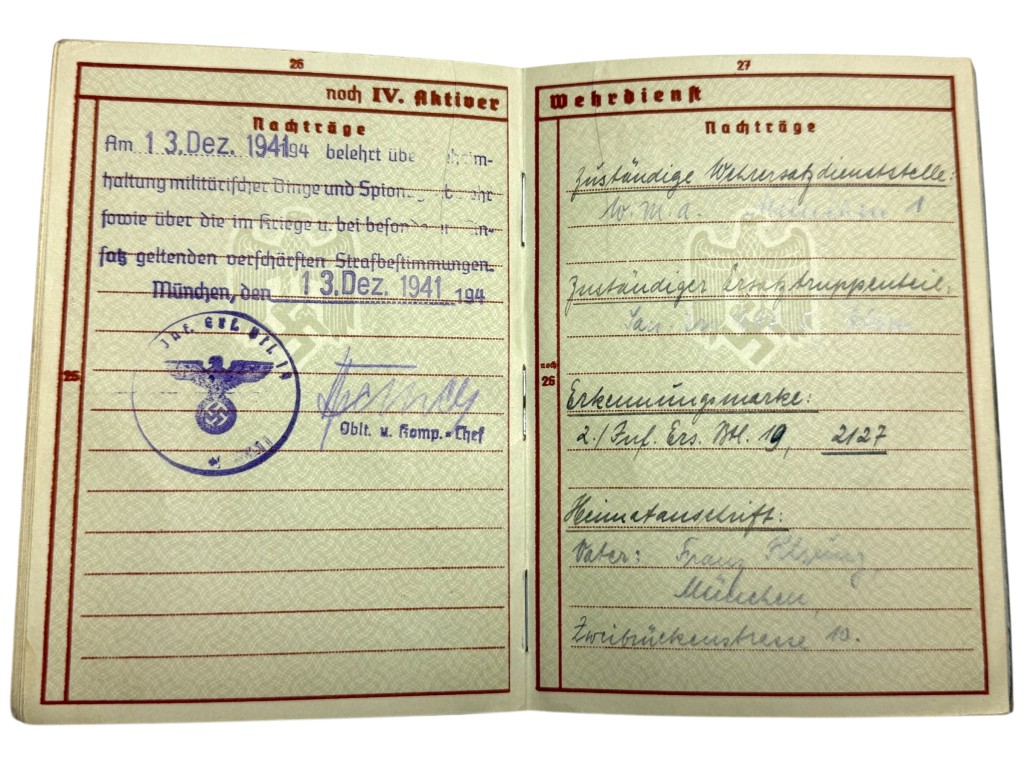 26
noch IV. Aktiver
Nachträge
Am 13. Dez. 1941 194 belehrt übe heim-
haltung militärischer Dinge und Spion
sowie über die im Kriege u. bei besond
satz geltenden verschärften Strafbestimmungen.
München, den 13. Dez. 1941 194
Inf. Ers. Btl. 19
Oblt. u. Komp.-Chef
25
27
Wehrdienst
Nachträge
Zuständige Wehrersatzdienststelle:
W. M. A. München 1
Zuständiger Ersatztruppenteil:
noch
26
Erkennungsmarke:
2./Inf. Ers. Btl. 19, 2127
Heimatanschrift:
Vater: Franz
München,
Zweibrückenstrasse 10.